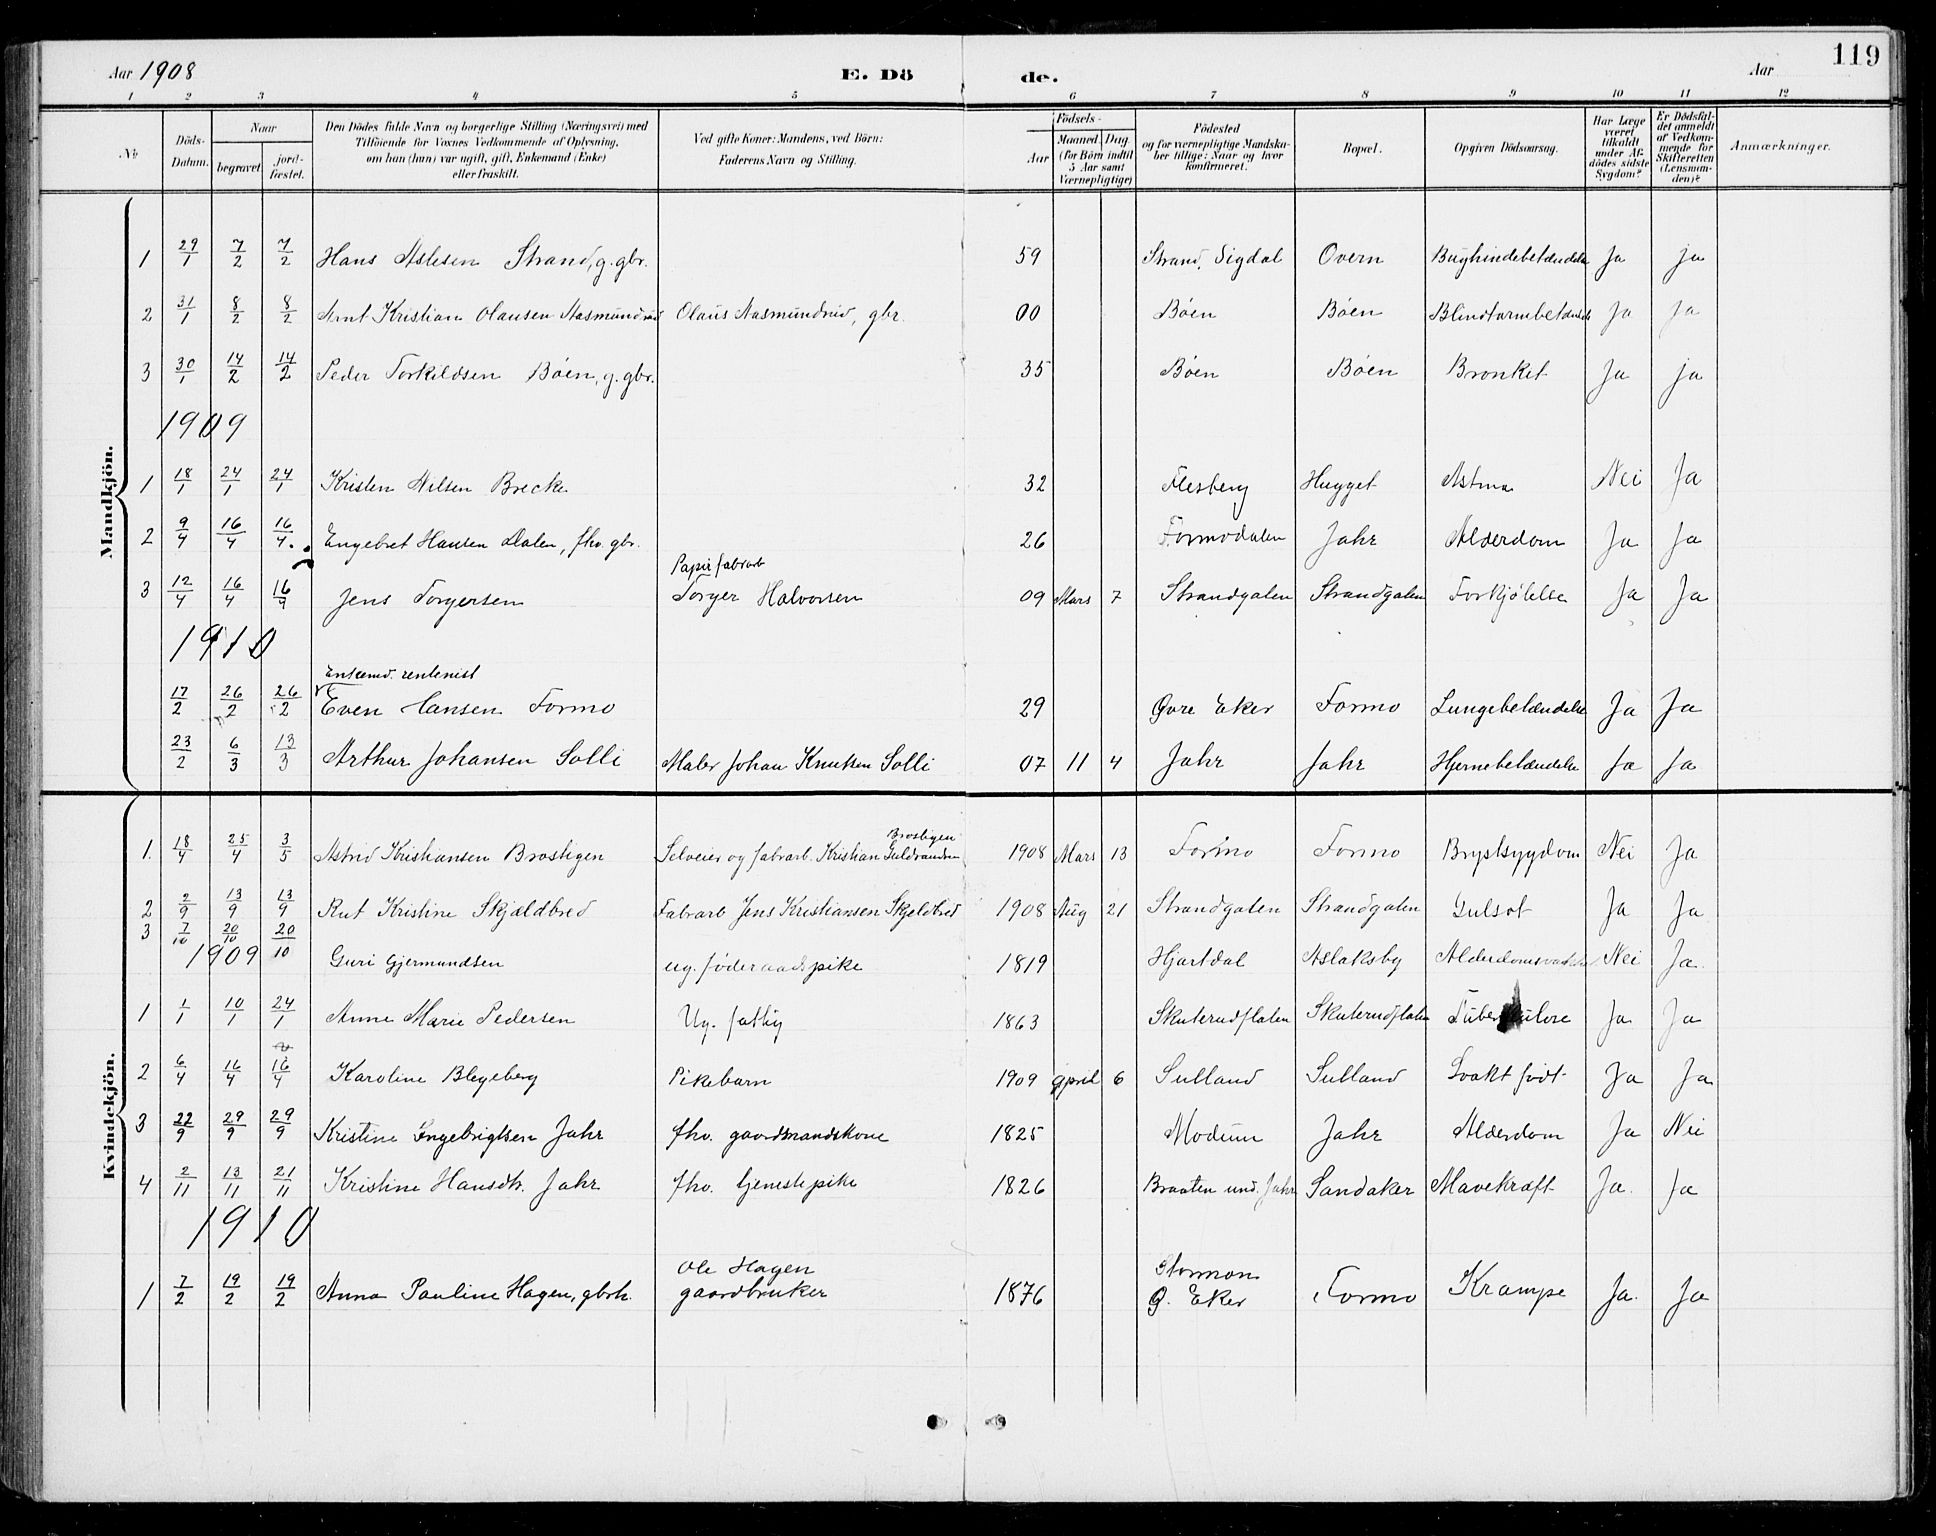 Aar 1908 E. Dö de. Aar 119
1 2 3 4 5 6 7 8 9 10 11 12
No Döds-Datum. Naar begravet. jord-fæstet. Den Dödes fulde Navn og borgerlige Stilling (Næringsvei) med Tilföiende for Voxnes Vedkommende af Oplysning, om han (hun) var ugift, gift, Enkemand (Enke) eller fraskilt. Ved gifte Koner: Mandens, ved Börn: Faderens Navn og Stilling. Födsels- Aar Maaned. Dag. (for Börn indtil 5 Aar samt Værnepligtige) Födested og for værnepligtige Mandska-ber tillige: Naar og hvor konfirmeret. Bopæl. Opgiven Dödsaarsag. Har Læge været tilkaldt under Af-dödes sidste Sygdom? Er Dödsfal-det anmeldt af Vedkom-mende for Skifteretten (Lensman-den)? Anmærkninger.
Mandkjön.
1 29/1 7/2 7/2 Hans Aslesen Strand, g. gbr. 59 Strand, Sigdal Overn Bughindebetændelse Ja ja
2 31/1 8/2 8/2 Arnt Kristian Olausen Aasmundrud Olaus Aasmundrud, gbr. 00 Bøen Bøen Blindtarmbetændelse Ja Ja
3 30/1 14/2 14/2 Peder Torkildsen Bøen, g. gbr. 35 Bøen Bøen Bronkit Ja ja
1909
1 18/1 24/1 24/1 Kristen Nilsen Brecke 32 Flesberg Hugget Astma Nei Ja
2 9/4 16/4 16/4. Engebret Hansen Dalen, fhv. gbr. 26 Formodalen Jahr Alderdom Ja Ja
Papirfabrarb
3 12/4 16/4 16/4 Jens Torgersen Torger Halvorsen 09 Mars 7 Strandgaten Strandgaten Forkjølelse Ja Ja
1910
Enkemd. rentenist
17/2 26/2 26/2 Even Hansen Formo 29 Øvre Eker Formo Lungebetændelse Ja Ja
23/2 6/3 13/3 Arthur Johansen Solli Maler Johan Knutsen Solli 07 11 4 Jahr Jahr Hjernebetændelse Ja Ja
Kvindekjön.
Brostigen
1. 18/4 25/4 3/5 Astrid Kristiansen Brostigen Selveier og fabrarb. Kristian Guldbrandsen 1908 Mars 13 Formo Formo Brystsygdom Nei Ja
2 2/9 13/9 13/9 Rut Kristine Skjældbred Fabrarb Jens Kristiansen Skjeldbred 1908 Aug 21 Strandgaten Strandgaten Gulsot Ja Ja
3 7/10 20/10 20/10 Guri Gjermundsen ug. føderaadspike 1819 Hjartdal Aslaksby Nei Ja.
1909
1 1/1 10/1 24/1 Anne Marie Pedersen Ug. fattig 1863 Skuterudflaten Skuterudflaten Tuberkulose Ja Ja
2 6/4 16/4 16/4 Karoline Blegeberg Pikebarn 1909 April 6 Sulland Sulland Svakt født Ja Ja
3 22/9 29/9 29/9 Kristine Engebrigtsen Jahr fhv. gaardmandskone 1825 Modum Jahr Alderdom Ja Nei
4 2/11 13/11 21/11 Kristine Hansdtr. Jahr fhv. tjenestepike 1826 Braaten und. Jahr Sandaker Mavekræft Ja. Ja
1910
Ole Hagen
1 7/2 19/2 19/2 Anna Pauline Hagen, gbrk. gaardbruker 1876 Ø. Eker Formo Krampe Ja. Ja